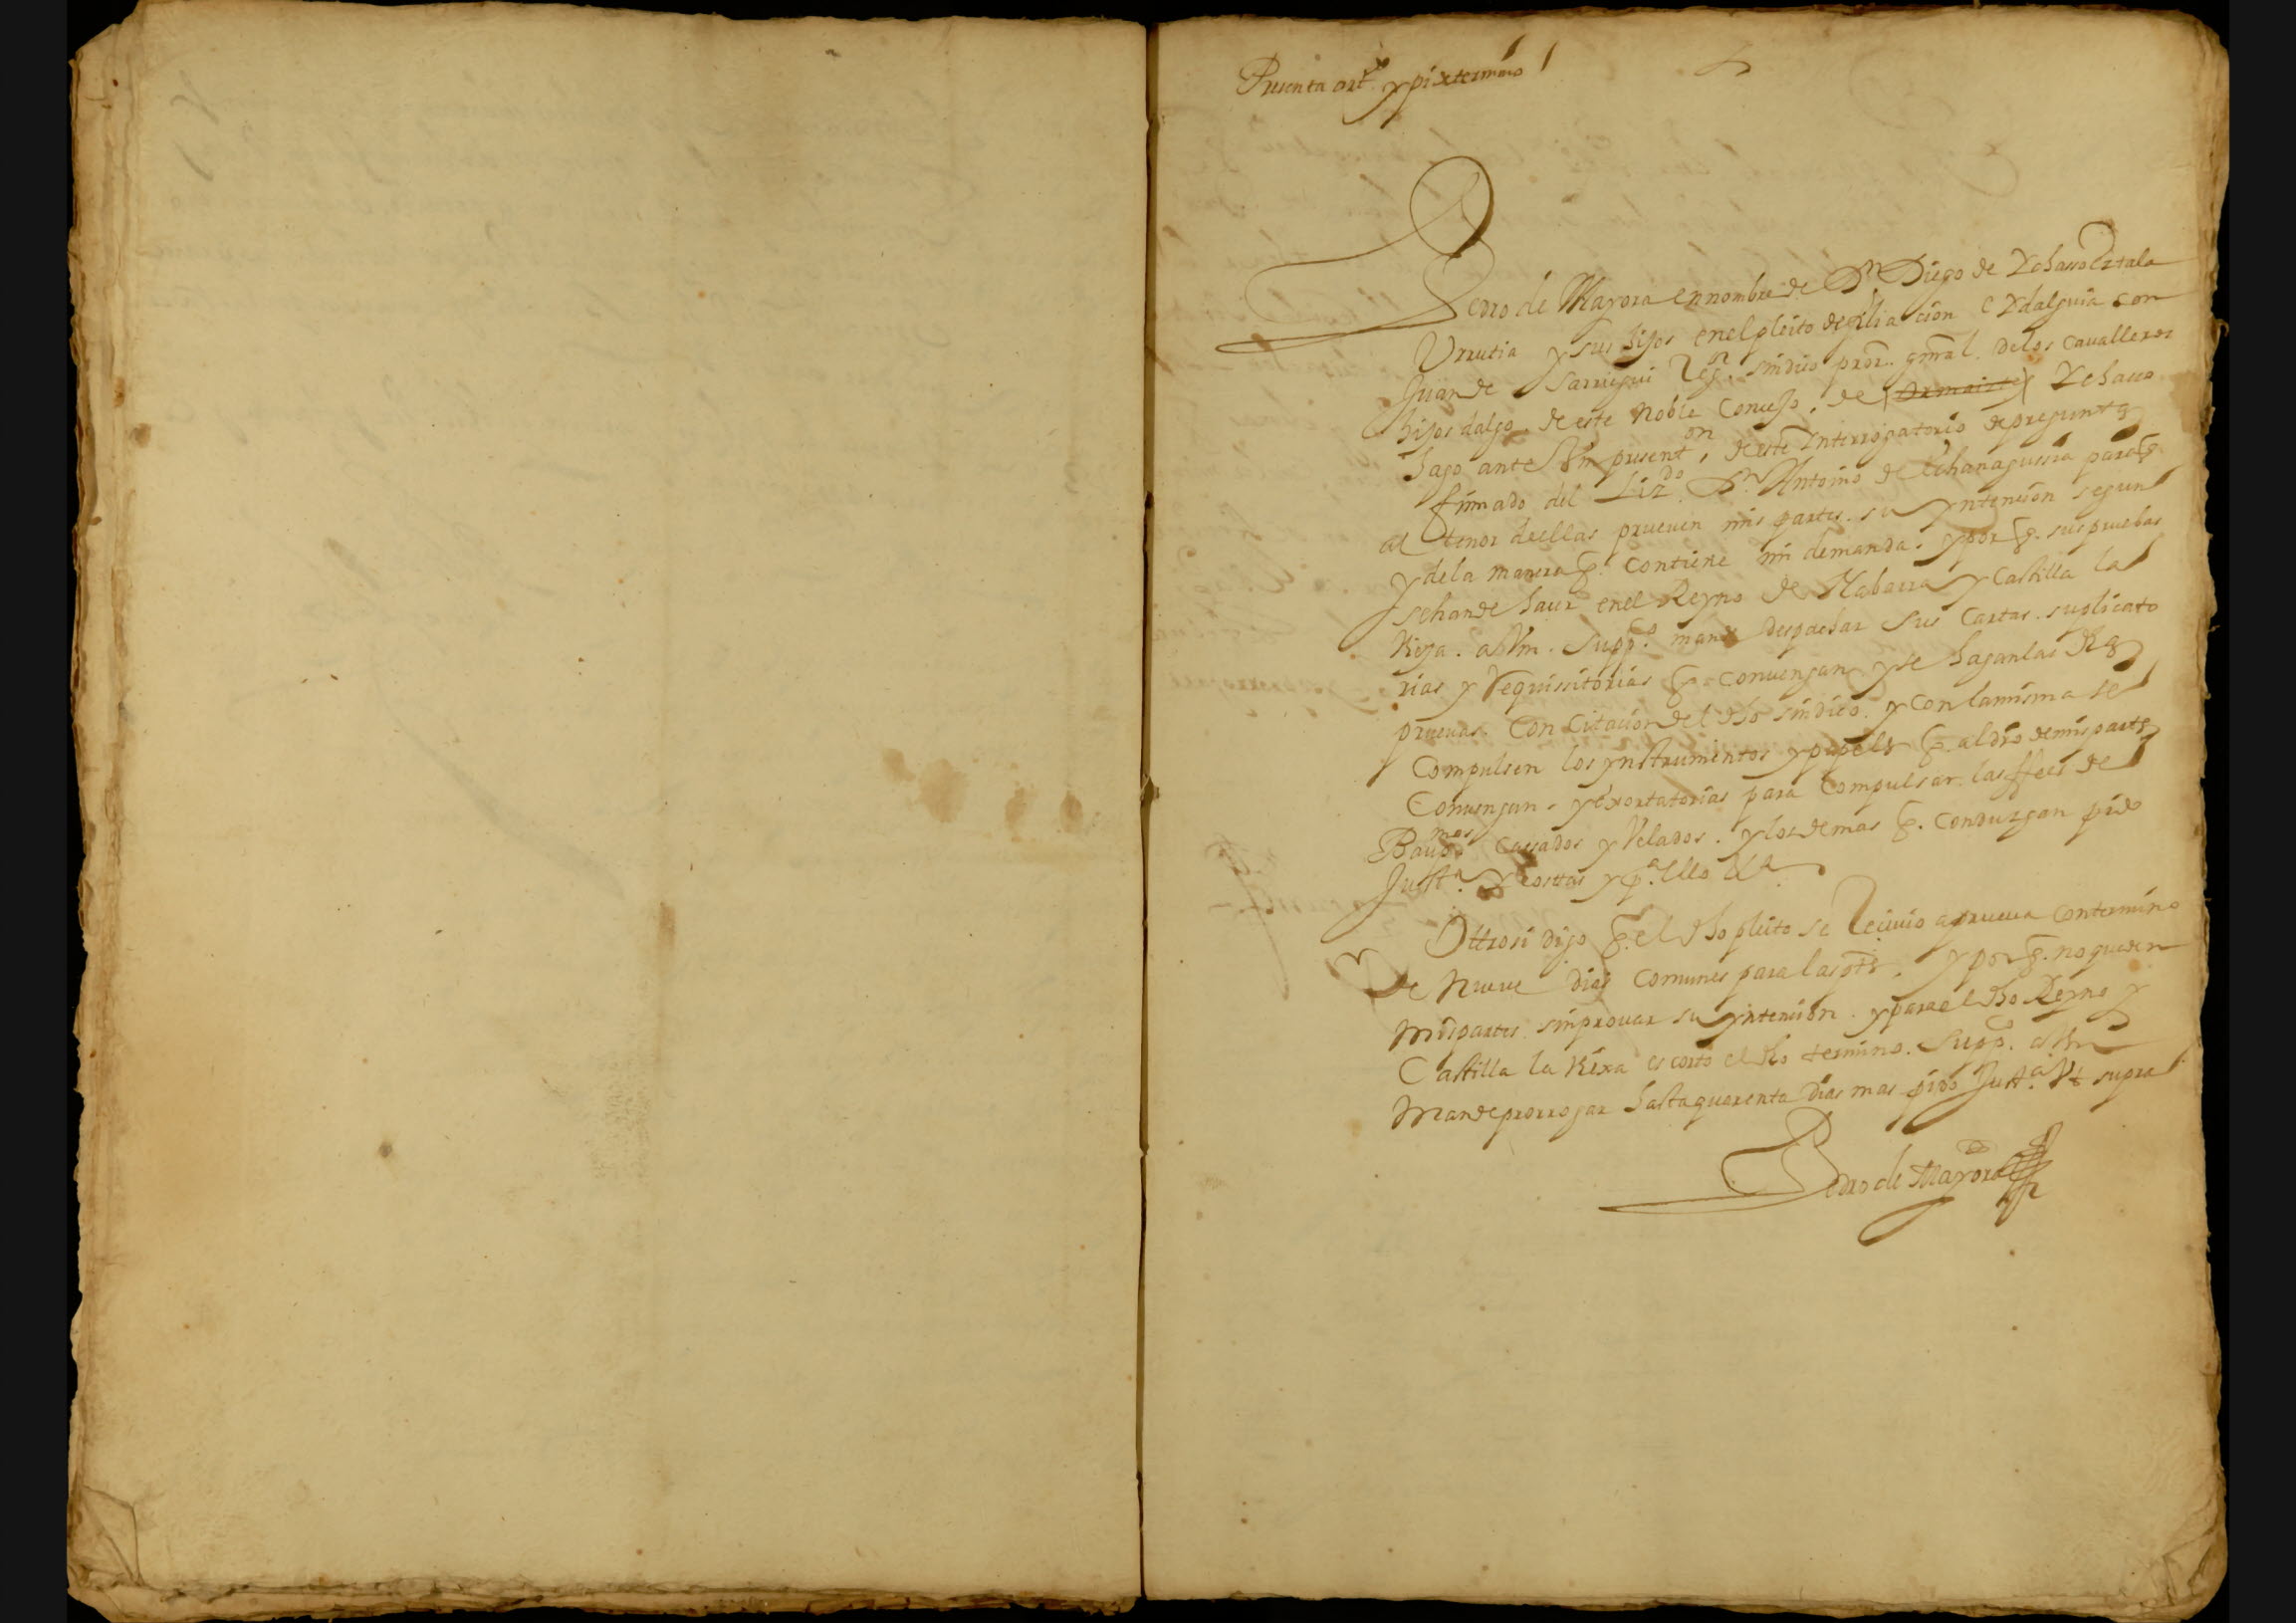 Presenta art.º y pi xtermino
Pedro de Mayora en nombre de Dn Diego de Ychasso Eztala
Urrutia y sus hijos en el pleito de filiacion e Ydalguia con
Juan de Ysarrigui Regor. sindico pror. gnral. de los Cavalleros
hijos dalgo. de este Noble Concejo. de Ychasso
hago ante Vm present.on de este Interrogatorio de preguntas
firmado del Lizdo. Dn Antonio de Echanagussia para q.
al tenor de ellas prueven mis partes. su yntencion segun
y de la manera q. contiene mi demanda. y por q. sus pruebas
se han de hacer en el Reyno de Nabarra y Castilla la
Vieja. a Vm. Suppco. mande despachar sus Cartas. suplicato
rias y Requissitorias q. convengan y se hagan las
pruevas. con citacion del dho sindico. y con la misma se
compulsen los ynstrumentos y papeles q. al dro de mis partes
Convengan. y exortatorias para compulsar. las ffees de
Baupmos Cassados y Velados. y los demas q. conduzgan pido
Justa. y costas y pa. ello &a.
Ottrosi digo q. el dho pleito se Recivio a prueva con termino
de Nueve dias comunes para las ptes. y por q. no queden
mis partes sin provar su yntencion. y para el dho Reyno y
Castilla la Viexa es corto el dho termino. Suppco. a Vm
mande prorrogar hasta quarenta dias mas pido Justa. Vt supra
Pedro de Mayora